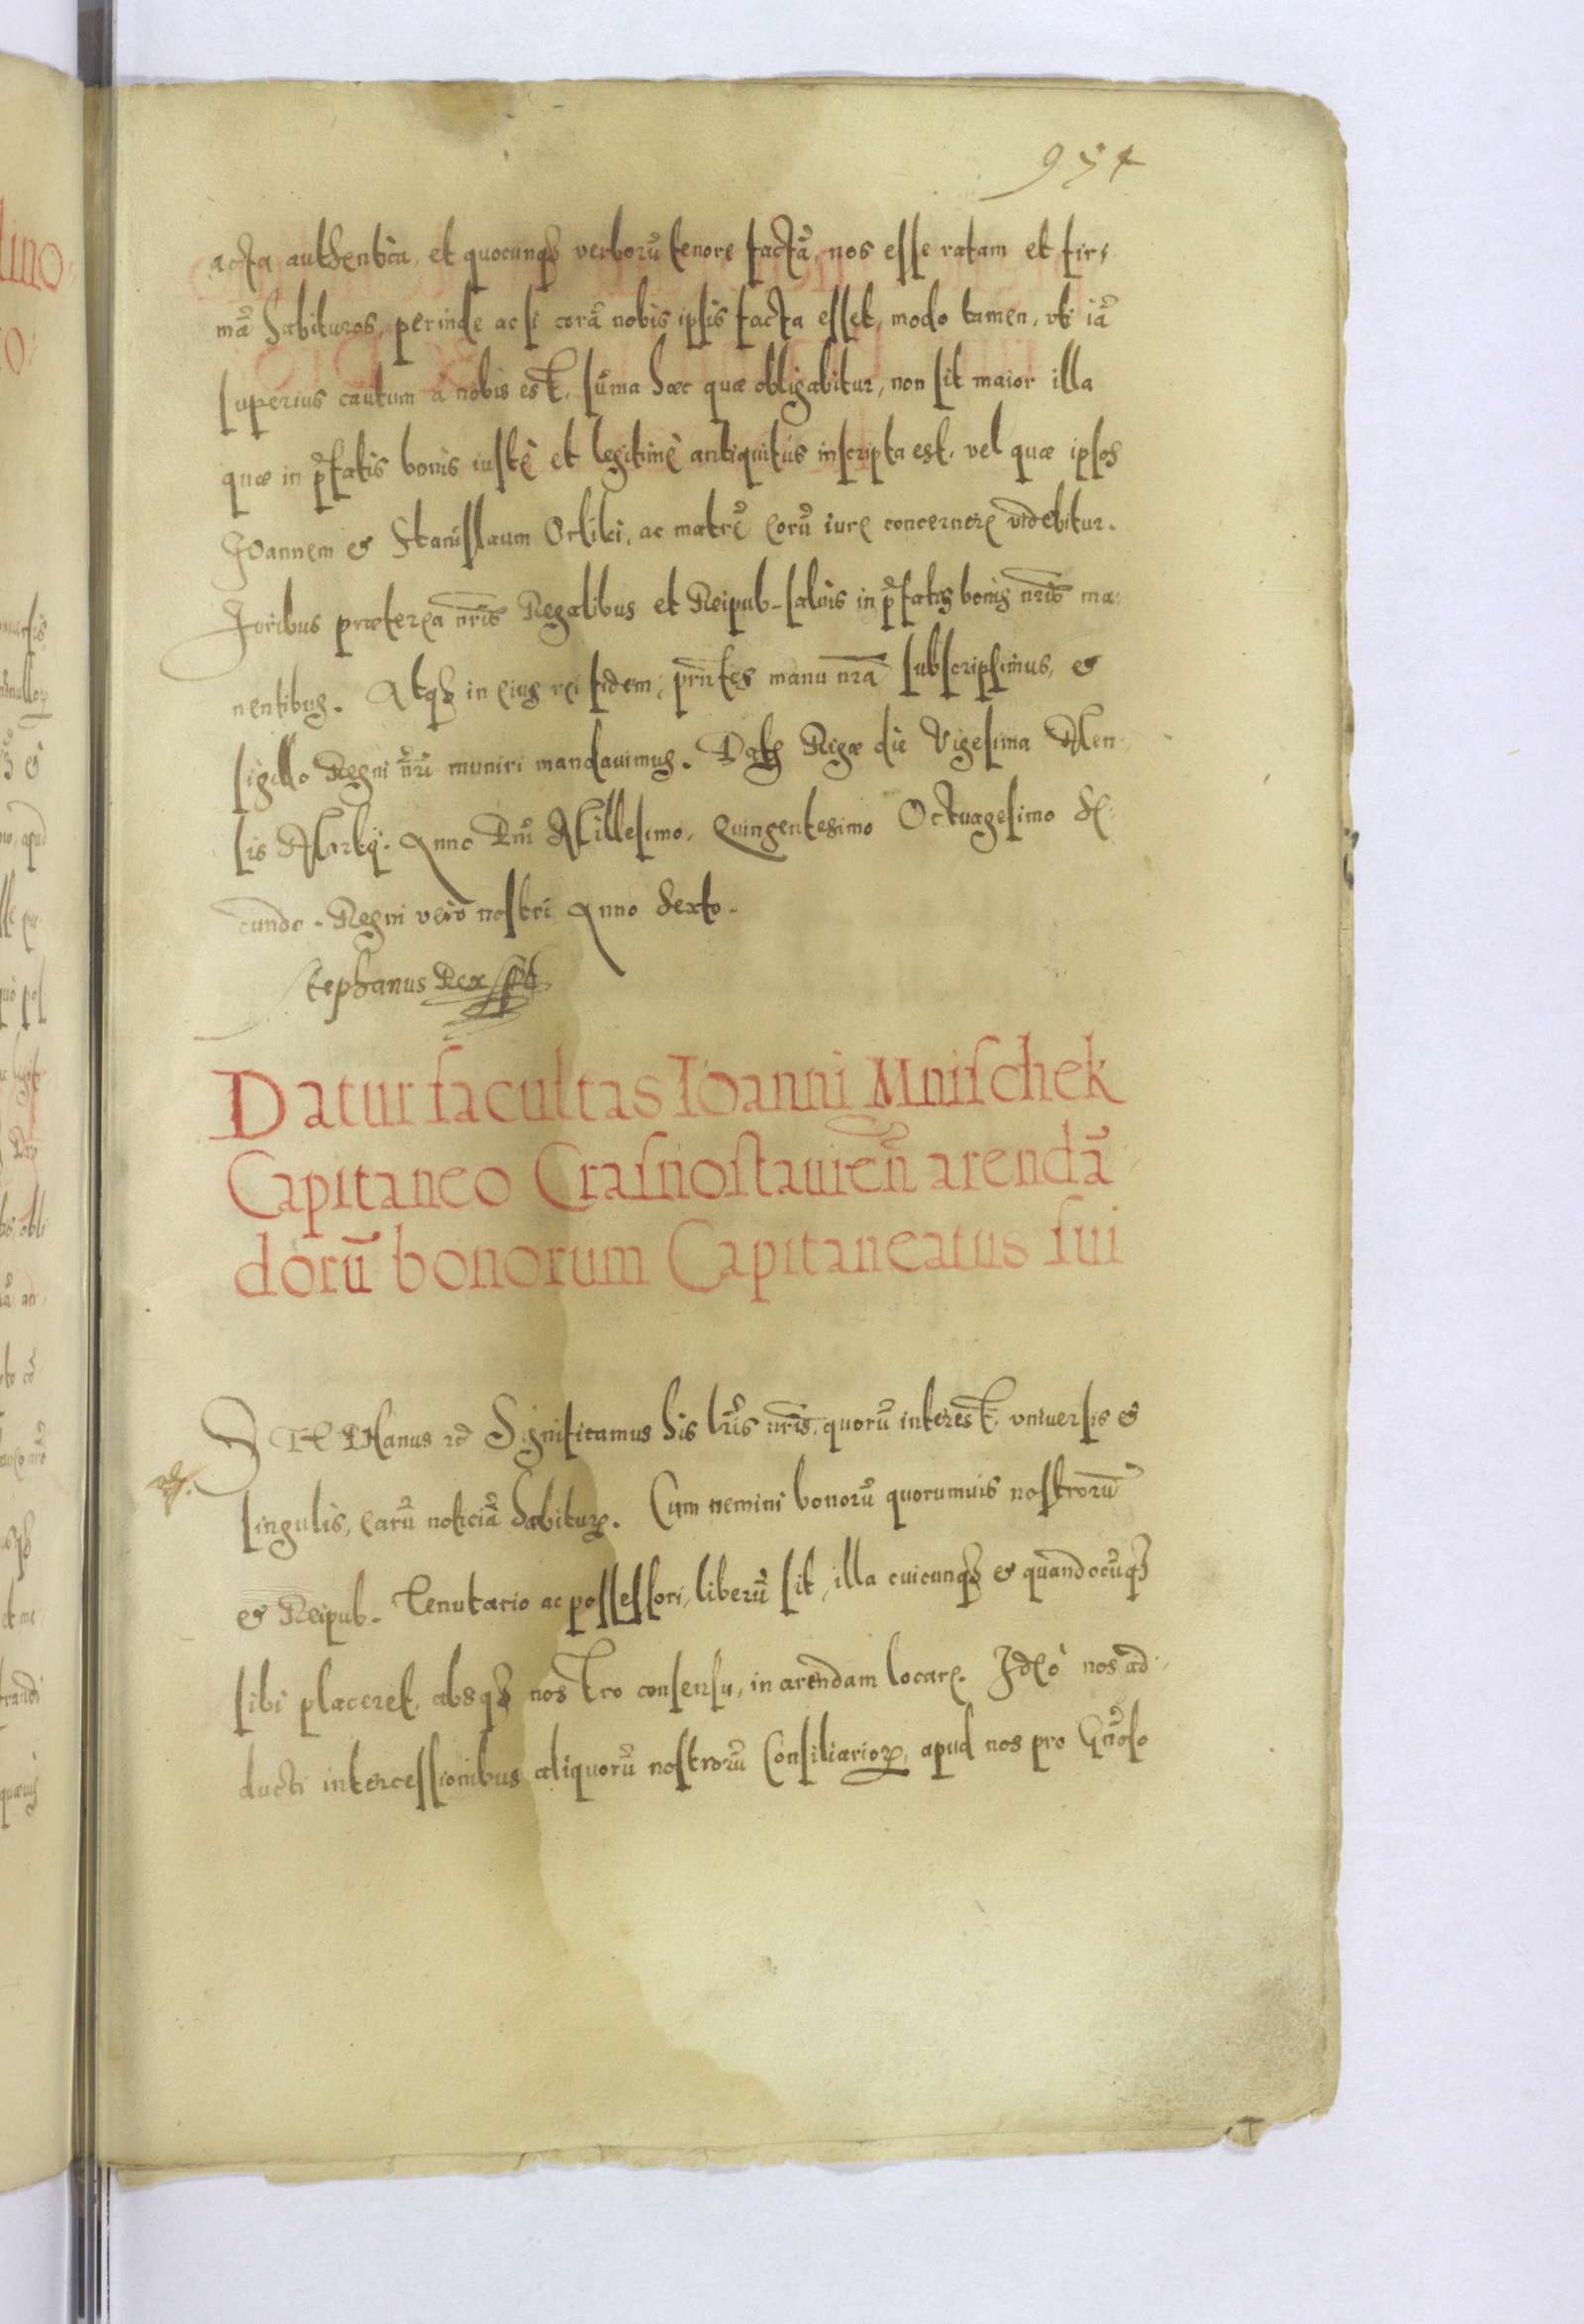 954
acta authentica, et quocunqȝ verborũ tenore factã, nos esse ratam et fir,
mã habituros, perinde ac si corã nobis ipsis facta esset, modo tamen, vti iã
superius cautum a nobis est, sũma hæc quæ obligabitur, non sit maior illa
quæ in p̃fatis bonis iustè et legitimè antiquitùs inscripta est, vel quæ ipsos
Joannem & Stanislaum Orliki, ac matrẽ eorũ iure concernere videbitur.
Juribus præterea nr̃is Regalibus et Reipub. saluis in p̃fatis bonis nr̃is ma,
nentibus. Atqȝ in eius rei fidem, pr̃ntes manu nr̃a subscripsimus, &
sigillo Regni nr̃i muniri mandauimus. Datȝ Rigæ die Vigesima Men,
sis Martij. Anno Dnĩ Millesimo, Quingentesimo Octuagesimo Se,
cundo. Regni vero nostri Anno Sexto.
Stephanus Rex sst
Datur facultas Ioanni Mnischek
Capitaneo Crasnostauieñ arendã,
dorũ bonorum Capitaneatus sui
STEPHanus rč Significamus his lr̃is nr̃is, quorũ interest, vniuersis &
singulis, earũ noticiã habiturꝫ. Cum nemini bonorũ quorumuis nostrorũ
& Reipub. Tenutario ac possessori, liberũ sit, illa cuicunqȝ & quandocũqȝ
sibi placeret, absqȝ nostro consensu, in arendam locare. Ideò nos ad,
ducti intercessionibus aliquorũ nostrorũ Consiliarioꝝ, apud nos pro Gñoso